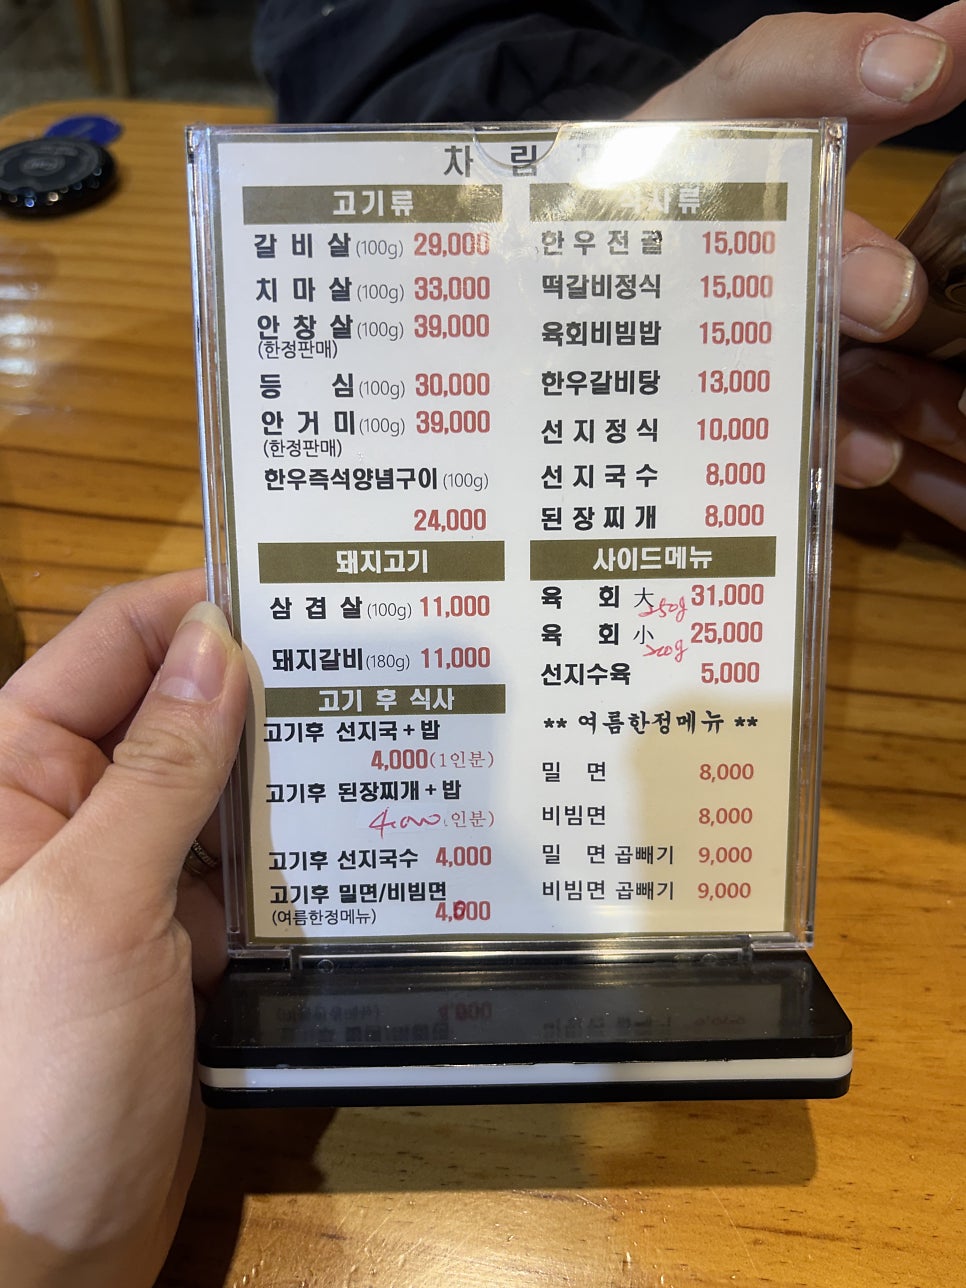 차 림
고기류
갈 비 살 (100g) 29,000
치 마 살 (100g) 33,000
안 창 살 (100g) 39,000
(한정판매)
등 심 (100g) 30,000
안 거 미 (100g) 39,000
(한정판매)
한우즉석양념구이 (100g)
24,000
돼지고기
삼 겹 살 (100g) 11,000
돼지갈비 (180g) 11,000
고기 후 식사
고기후 선지국+밥
4,000(1인분)
고기후 된장찌개+밥
4,000 인분)
고기후 선지국수 4,000
고기후 밀면/비빔면
(여름한정메뉴) 4,000
식사류
한 우 전 골 15,000
떡갈비정식 15,000
육회비빔밥 15,000
한우갈비탕 13,000
선 지 정 식 10,000
선 지 국 수 8,000
된 장 찌 개 8,000
사이드메뉴
육 회 大 250g 31,000
육 회 小 200g 25,000
선지수육 5,000
** 여름한정메뉴 **
밀 면 8,000
비빔면 8,000
밀 면 곱빼기 9,000
비빔면 곱빼기 9,000